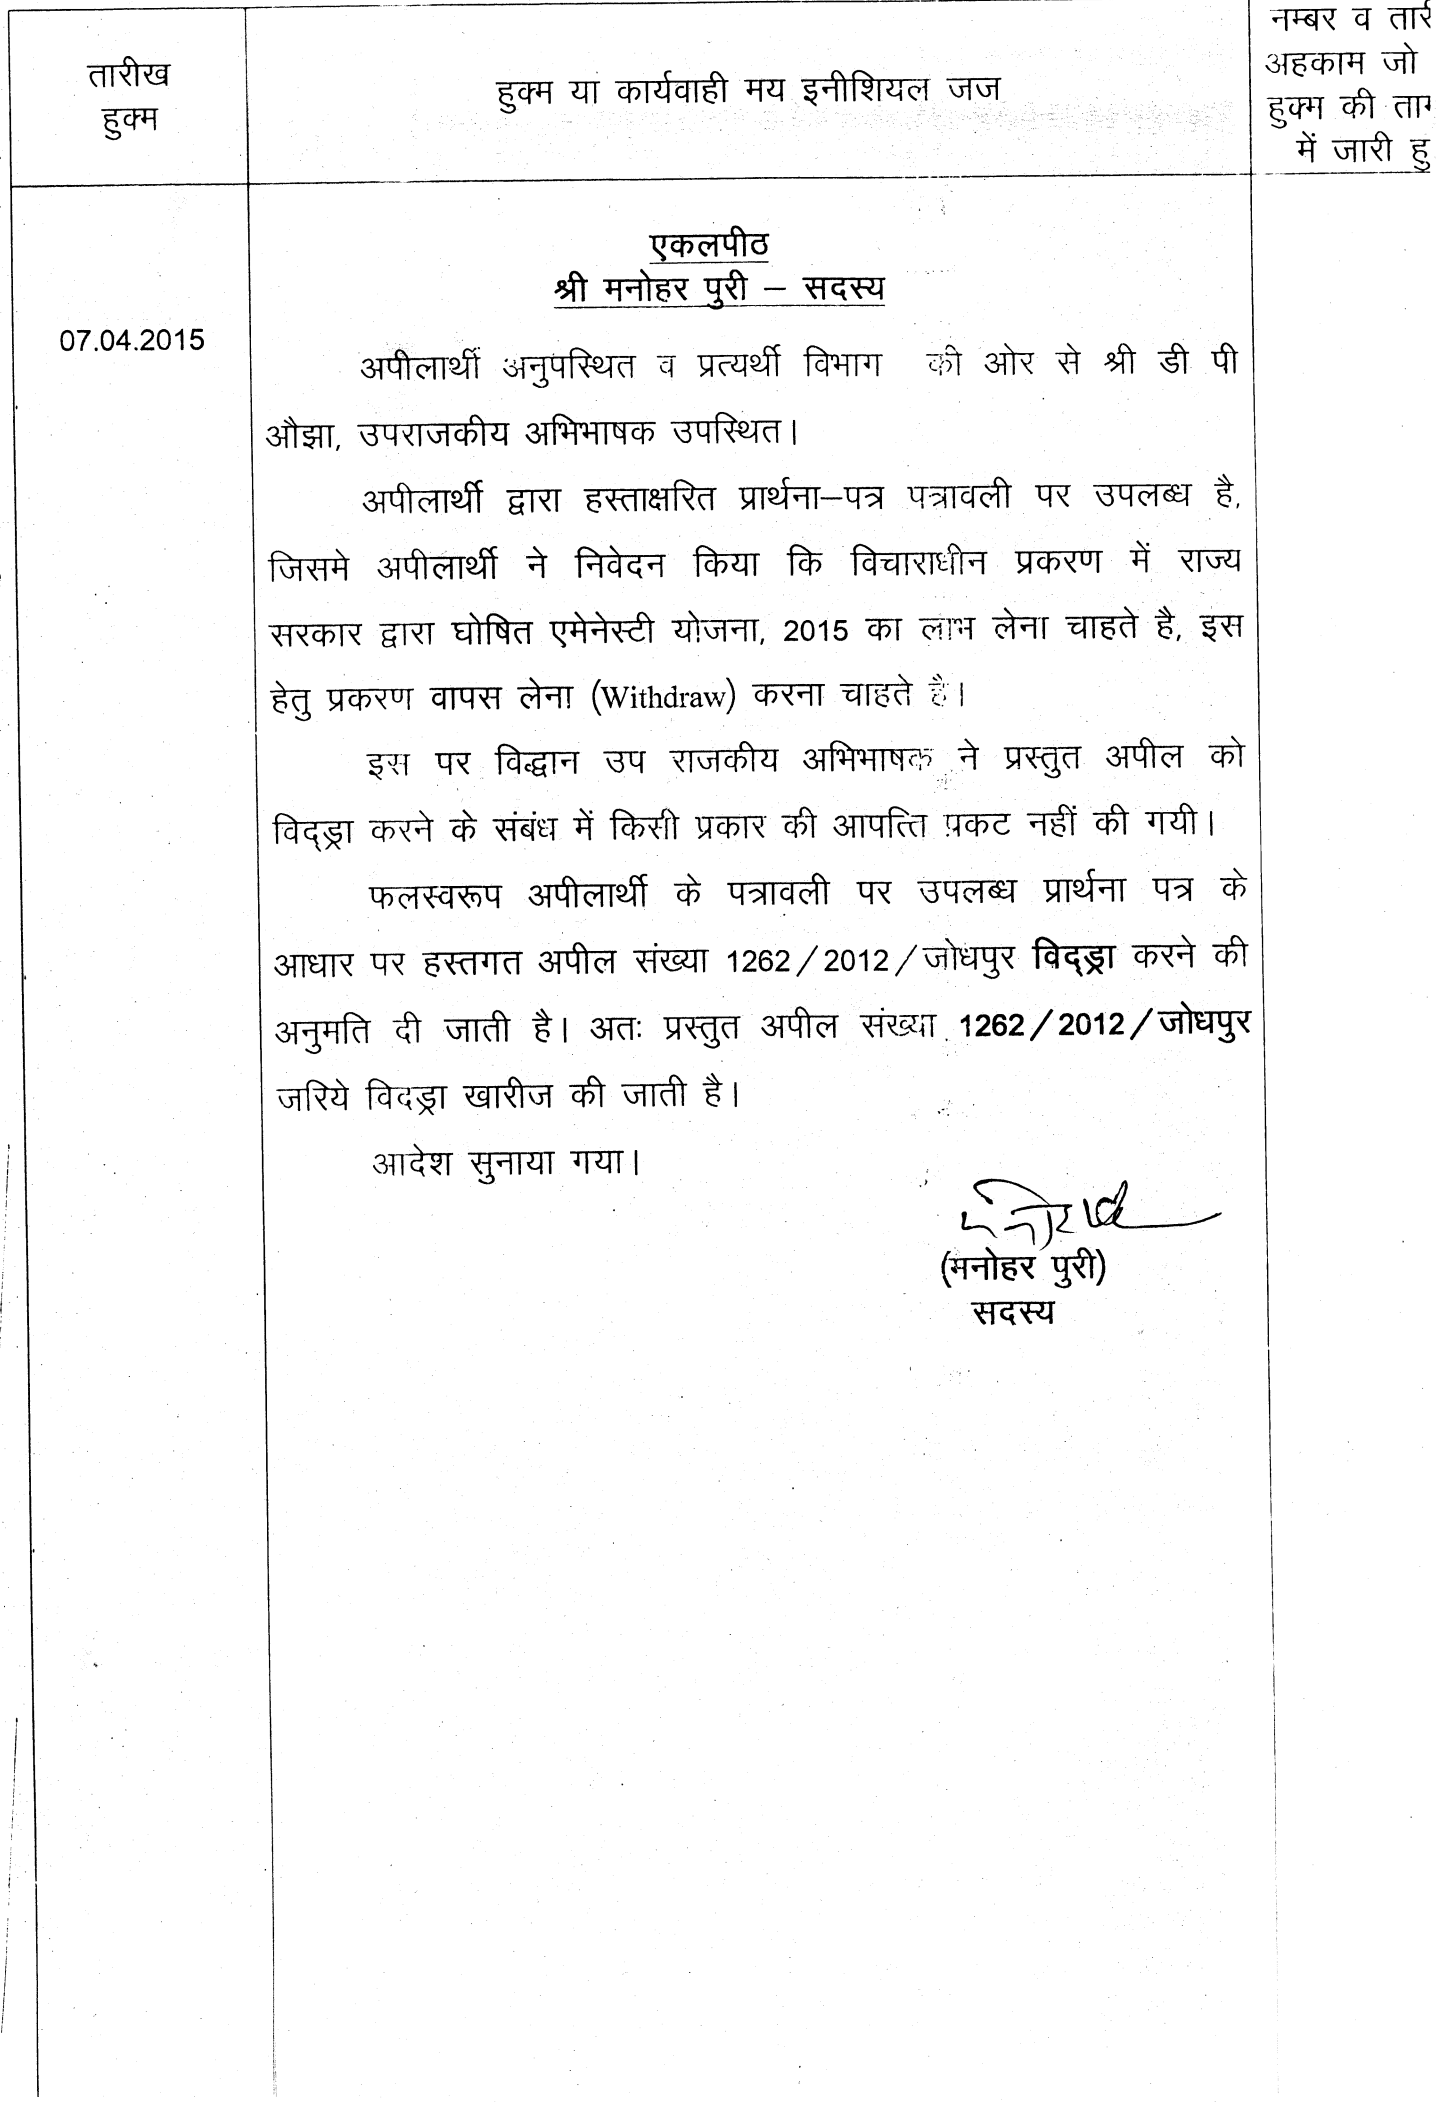 तारीख
हुक्म
हुक्म या कार्यवाही मय इनीशियल जज
नम्बर व
अहकाम जो
हुक्म की
में जारी
एकलपीठ
श्री मनोहर पुरी – सदस्य
07.04.2015
अपीलार्थी अनुपस्थित व प्रत्यर्थी विभाग की ओर से श्री डी पी
औझा, उपराजकीय अभिभाषक उपस्थित।
अपीलार्थी द्वारा हस्ताक्षरित प्रार्थना–पत्र पत्रावली पर उपलब्ध है,
जिसमे अपीलार्थी ने निवेदन किया कि विचाराधीन प्रकरण में राज्य
सरकार द्वारा घोषित एमेनेस्टी योजना, 2015 का लाभ लेना चाहते है, इस
हेतु प्रकरण वापस लेना (Withdraw) करना चाहते है।
इस पर विद्धान उप राजकीय अभिभाषक ने प्रस्तुत अपील को
विद्ड्रा करने के संबंध में किसी प्रकार की आपत्ति प्रकट नहीं की गयी।
फलस्वरूप अपीलार्थी के पत्रावली पर उपलब्ध प्रार्थना पत्र के
आधार पर हस्तगत अपील संख्या 1262/2012/जोधपुर विद्ड्रा करने की
अनुमति दी जाती है। अतः प्रस्तुत अपील संख्या 1262/2012/जोधपुर
जरिये विदड्रा खारीज की जाती है।
आदेश सुनाया गया।
(मनोहर पुरी)
सदस्य